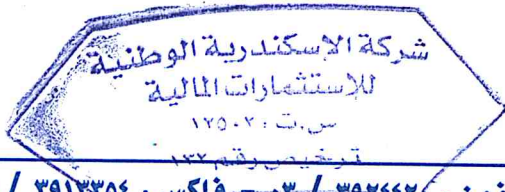 شركة الإسكندرية الوطنية
للإستثمارات المالية
س.ت : ١٢٥٠٢
ترخيص رقم ١٣٢
٣٩٢٤٤٢٤ / ٠٣ - فاكس : ٣٩١٣٣٥٤ /